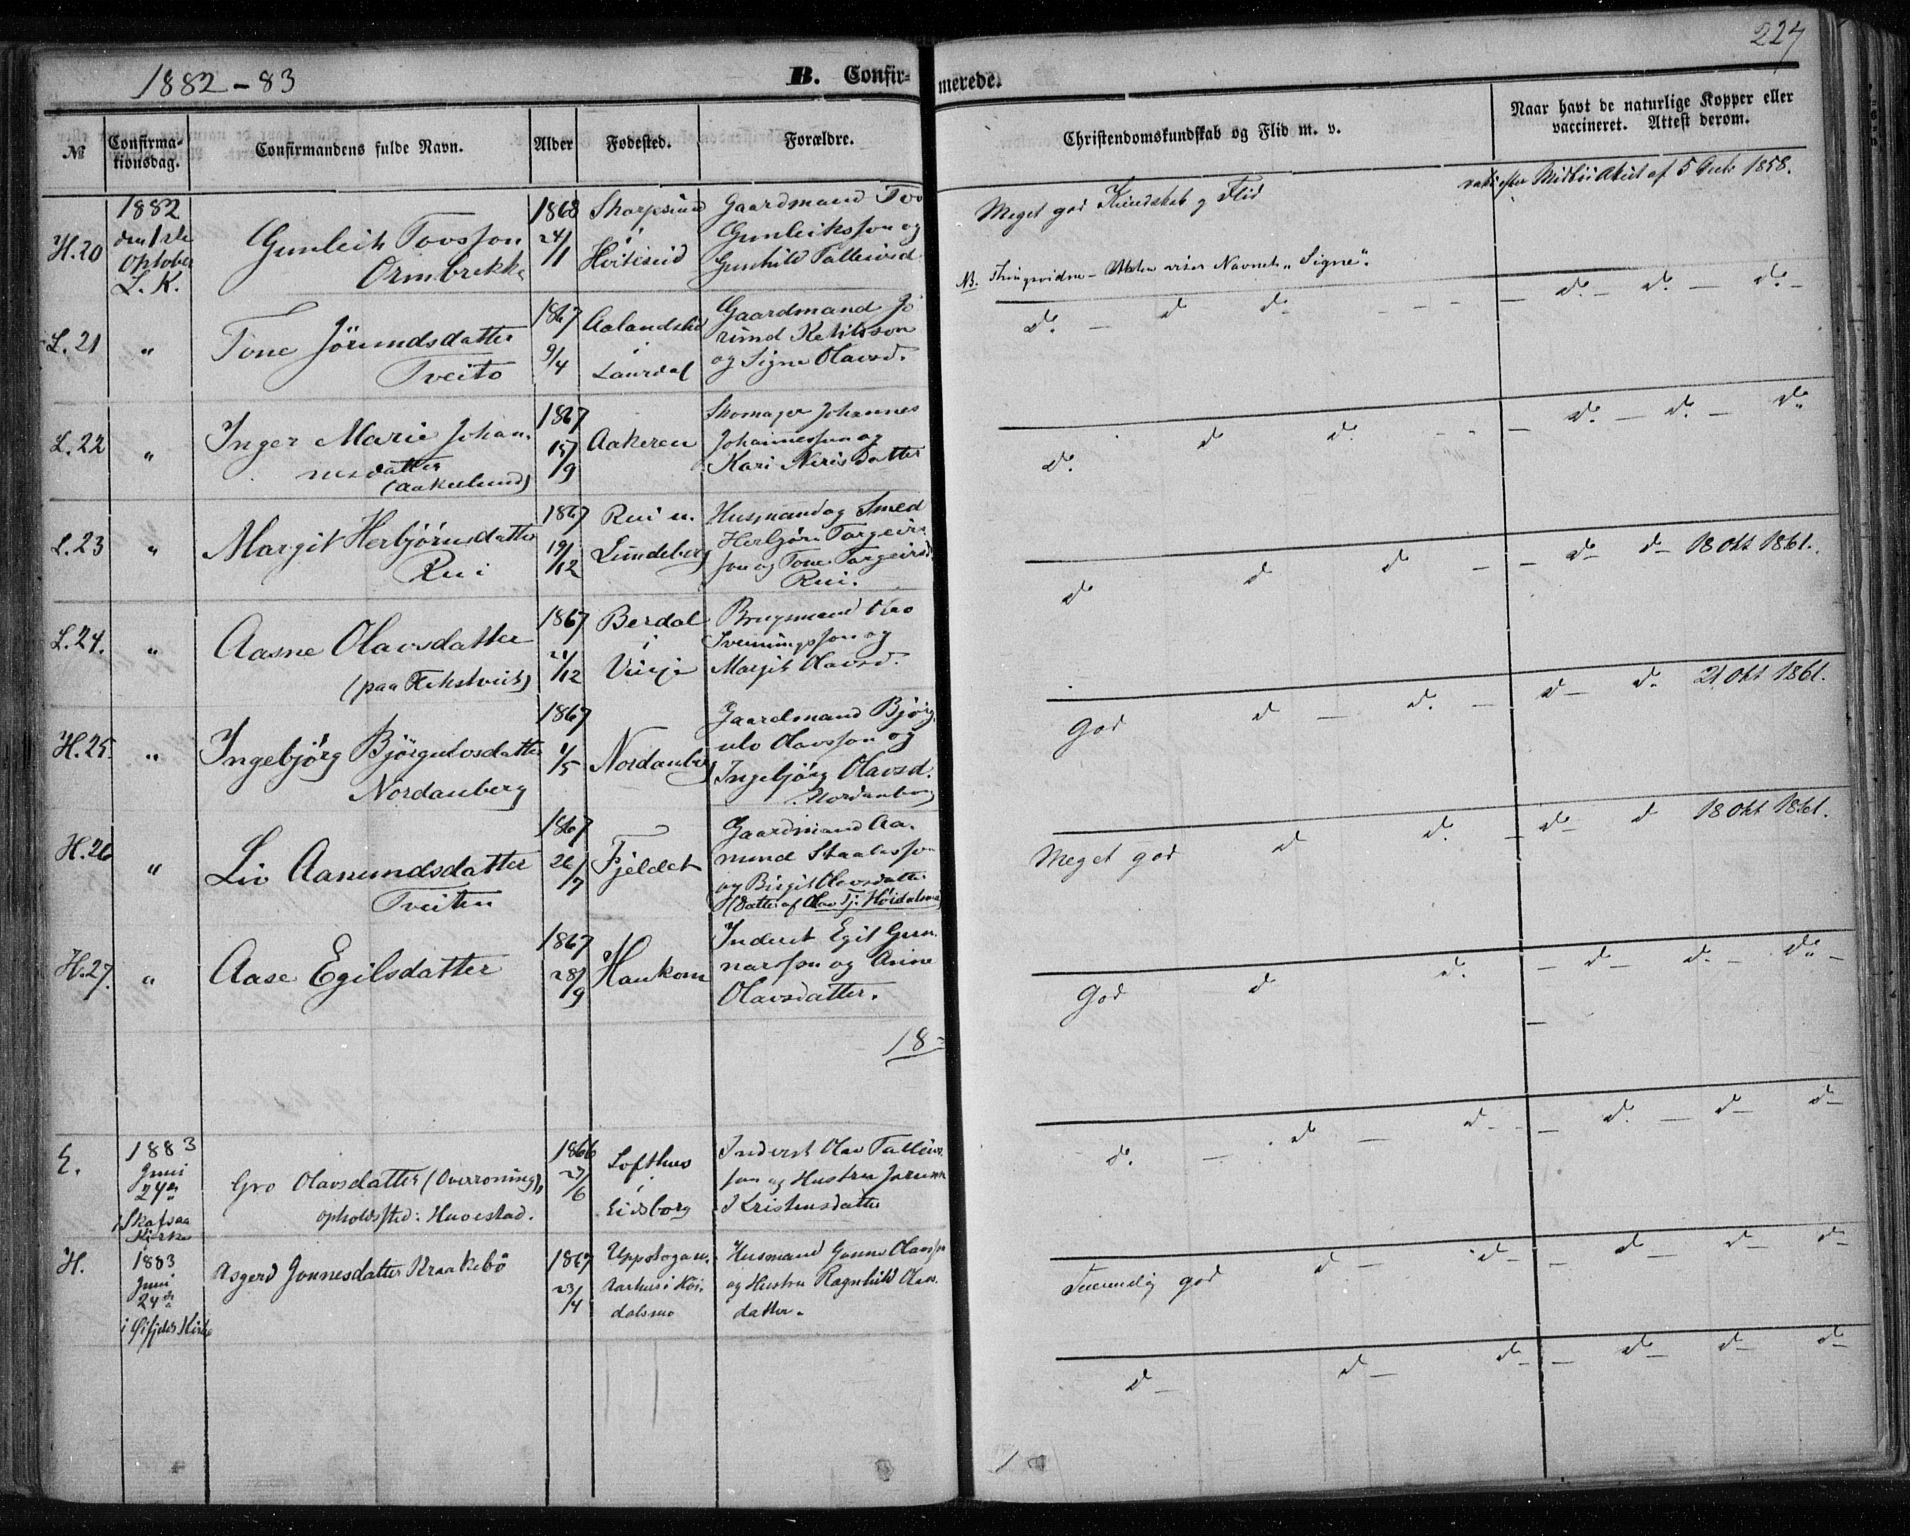 1882-83
B. Confirmerede.
227
№
Confirmationsdag.
Confirmandens fulde Navn.
Alder
Fødested.
Forældre.
Christendomskundskab og Flid m. v.
Naar havt de naturlige Kopper eller vaccineret. Attest derom.
H.20
1882
den 1ste
Oktober
L. K.
Gunleik Tovsson
Ormbrekke
1868
24/1
Skarpsund
i
Hvitiseid
Gaardmand Tov
Gunleiksson og
Gunhild Talleivsd.
Meget god Kundskab og Flid
af 5 1858.
NB. Navnet „Signe“.
L.21
"
Tone Jörundsdatter
Tveito
1867
9/4
Aalandslid
i
Laurdal
Gaardmand Jö
rund Ketilsson
og Signe Olavsd.
do. — do do. - - — do. — do. — do. —
L.22
"
Inger Marie Johan.
nesdatter
(Aakerlund)
1867
15/9
Aakeren
Skomager Johannes
Johannesson og
Kari Nerisdatter
do. do do. - - — do. — do. — do.
L.23
"
Margit Herbjörnsdatter
Rui
1867
19/12
Rui u.
Lundeberg
Husmand og Smed
Herbjörn Targeirs
son og Tone Targeirsd.
Rui.
do do do — — do — do — 18 Okt 1861.
L.24.
"
Aasne Olavsdatter
(paa )
1867
21/12
Berdal
i
Vinje
Brugsmand Olav
Sveinungsson og
Margit Olavsd.
God do — do. — do — do. 21 Okt 1861.
H.25.
"
Ingebjørg Bjørgulvsdatter
Nordanberg
1867
1/5
Nordanberg
Gaardmand Bjørg
ulv Olavsson og
Ingebjørg Olavsd.
Nordanberg
Meget god do do. — do — do 18 Okt 1861.
H.26
"
Liv Aanundsdatter
Tveiten
1867
26/7
Fjeldet
Gaardmand Aa.
nund Staalesson
og Birgit Olavsdatter
(Datter af Olav Tj. Höidalsmo)
God do do. — do — do. — do. —
H.27.
"
Aase Egilsdatter
1867
28/9
Haukom
Inderst Egil Gun.
narsson og Anne
Olavsdatter.
18
do. — do — do. — do. — do — do —
E.
1883
Juni
24de
i Skafsaa
Kirke
Gro Olavsdatter (Overroning),
opholdssted: Huvestad.
1866
27/6
Lofthus
i
Eidsborg
Inderst Olav Talleivs
son og Hustru Jorunn
Kristensdatter
Temmelig god do — do — do — do — do —
H.
1883
Juni
24de
i Øifjelds Kirke
Asgerd Jonnesdatter Kraakebö
1867
23/4
Uppstogan u.
Aarhus i Höi.
dalsmo
Husmand Gonne Olavsson
og Hustru Ragnhild Olavs.
datter.
do — do — do — do — do — do —